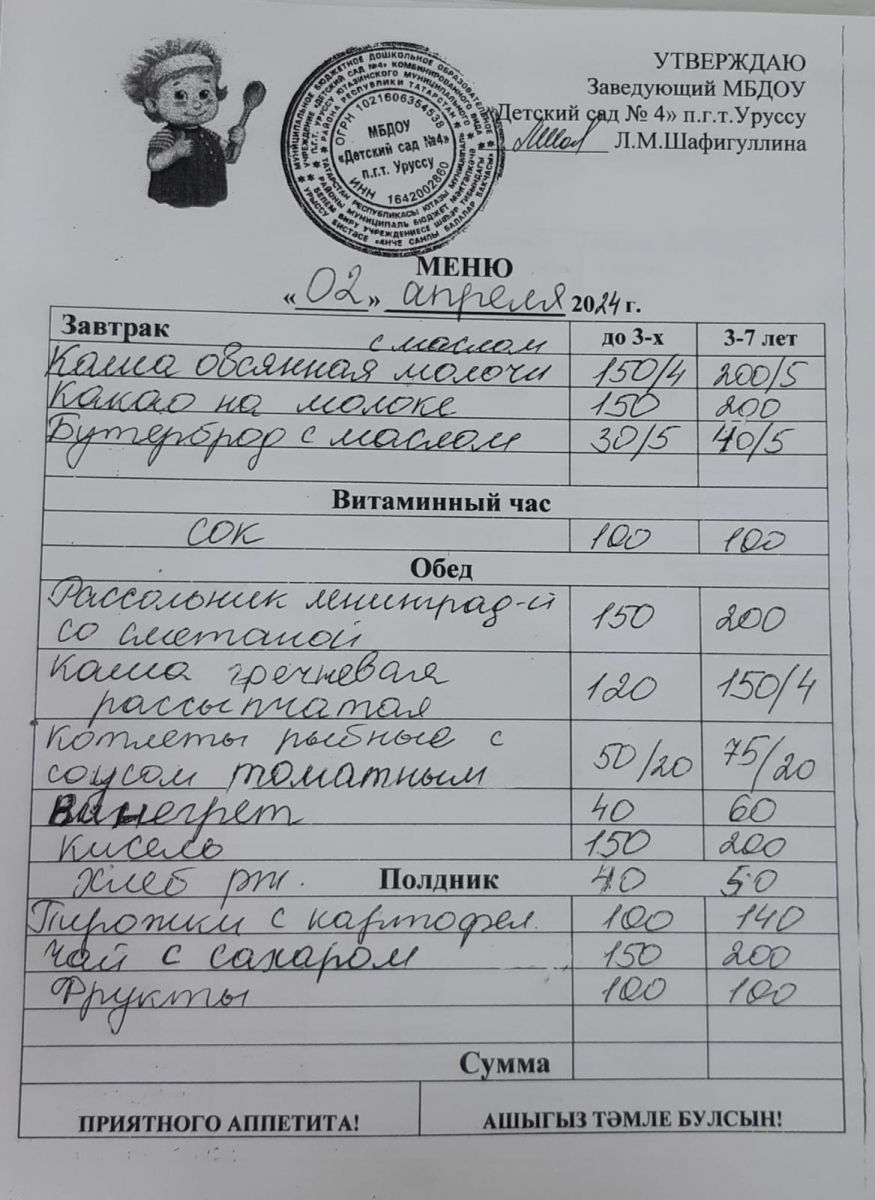 УТВЕРЖДАЮ
Заведующий МБДОУ
«Детский сад № 4» п.г.т.Уруссу
Л.М.Шафигуллина
МУНИЦИПАЛЬНОЕ БЮДЖЕТНОЕ ДОШКОЛЬНОЕ ОБРАЗОВАТЕЛЬНОЕ
УЧРЕЖДЕНИЕ «ДЕТСКИЙ САД №4» КОМБИНИРОВАННОГО ВИДА
П.Г.Т. УРУССУ ЮТАЗИНСКОГО МУНИЦИПАЛЬНОГО
РАЙОНА РЕСПУБЛИКИ ТАТАРСТАН
ОГРН 1021606354538
МБДОУ
«Детский сад №4»
п.г.т. Уруссу
ИНН 1642002860
МЕНЮ
«02» апреля 2024 г.
Завтрак до 3-х 3-7 лет
с маслом
Каша овсянная молочн 150/4 200/5
Какао на молоке 150 200
Бутерброд с маслом 30/5 40/5
Витаминный час
сок 100 100
Обед
Рассольник ленинград-й
со сметаной 150 200
Каша гречневая
рассыпчатая 120 150/4
Котлеты рыбные с
соусом томатным 50/20 75/20
Винегрет 40 60
Кисель 150 200
Хлеб рж. 40 50
Полдник
Пирожки с картофел. 100 140
Чай с сахаром 150 200
Фрукты 100 100
Сумма
ПРИЯТНОГО АППЕТИТА! АШЫГЫЗ ТӘМЛЕ БУЛСЫН!